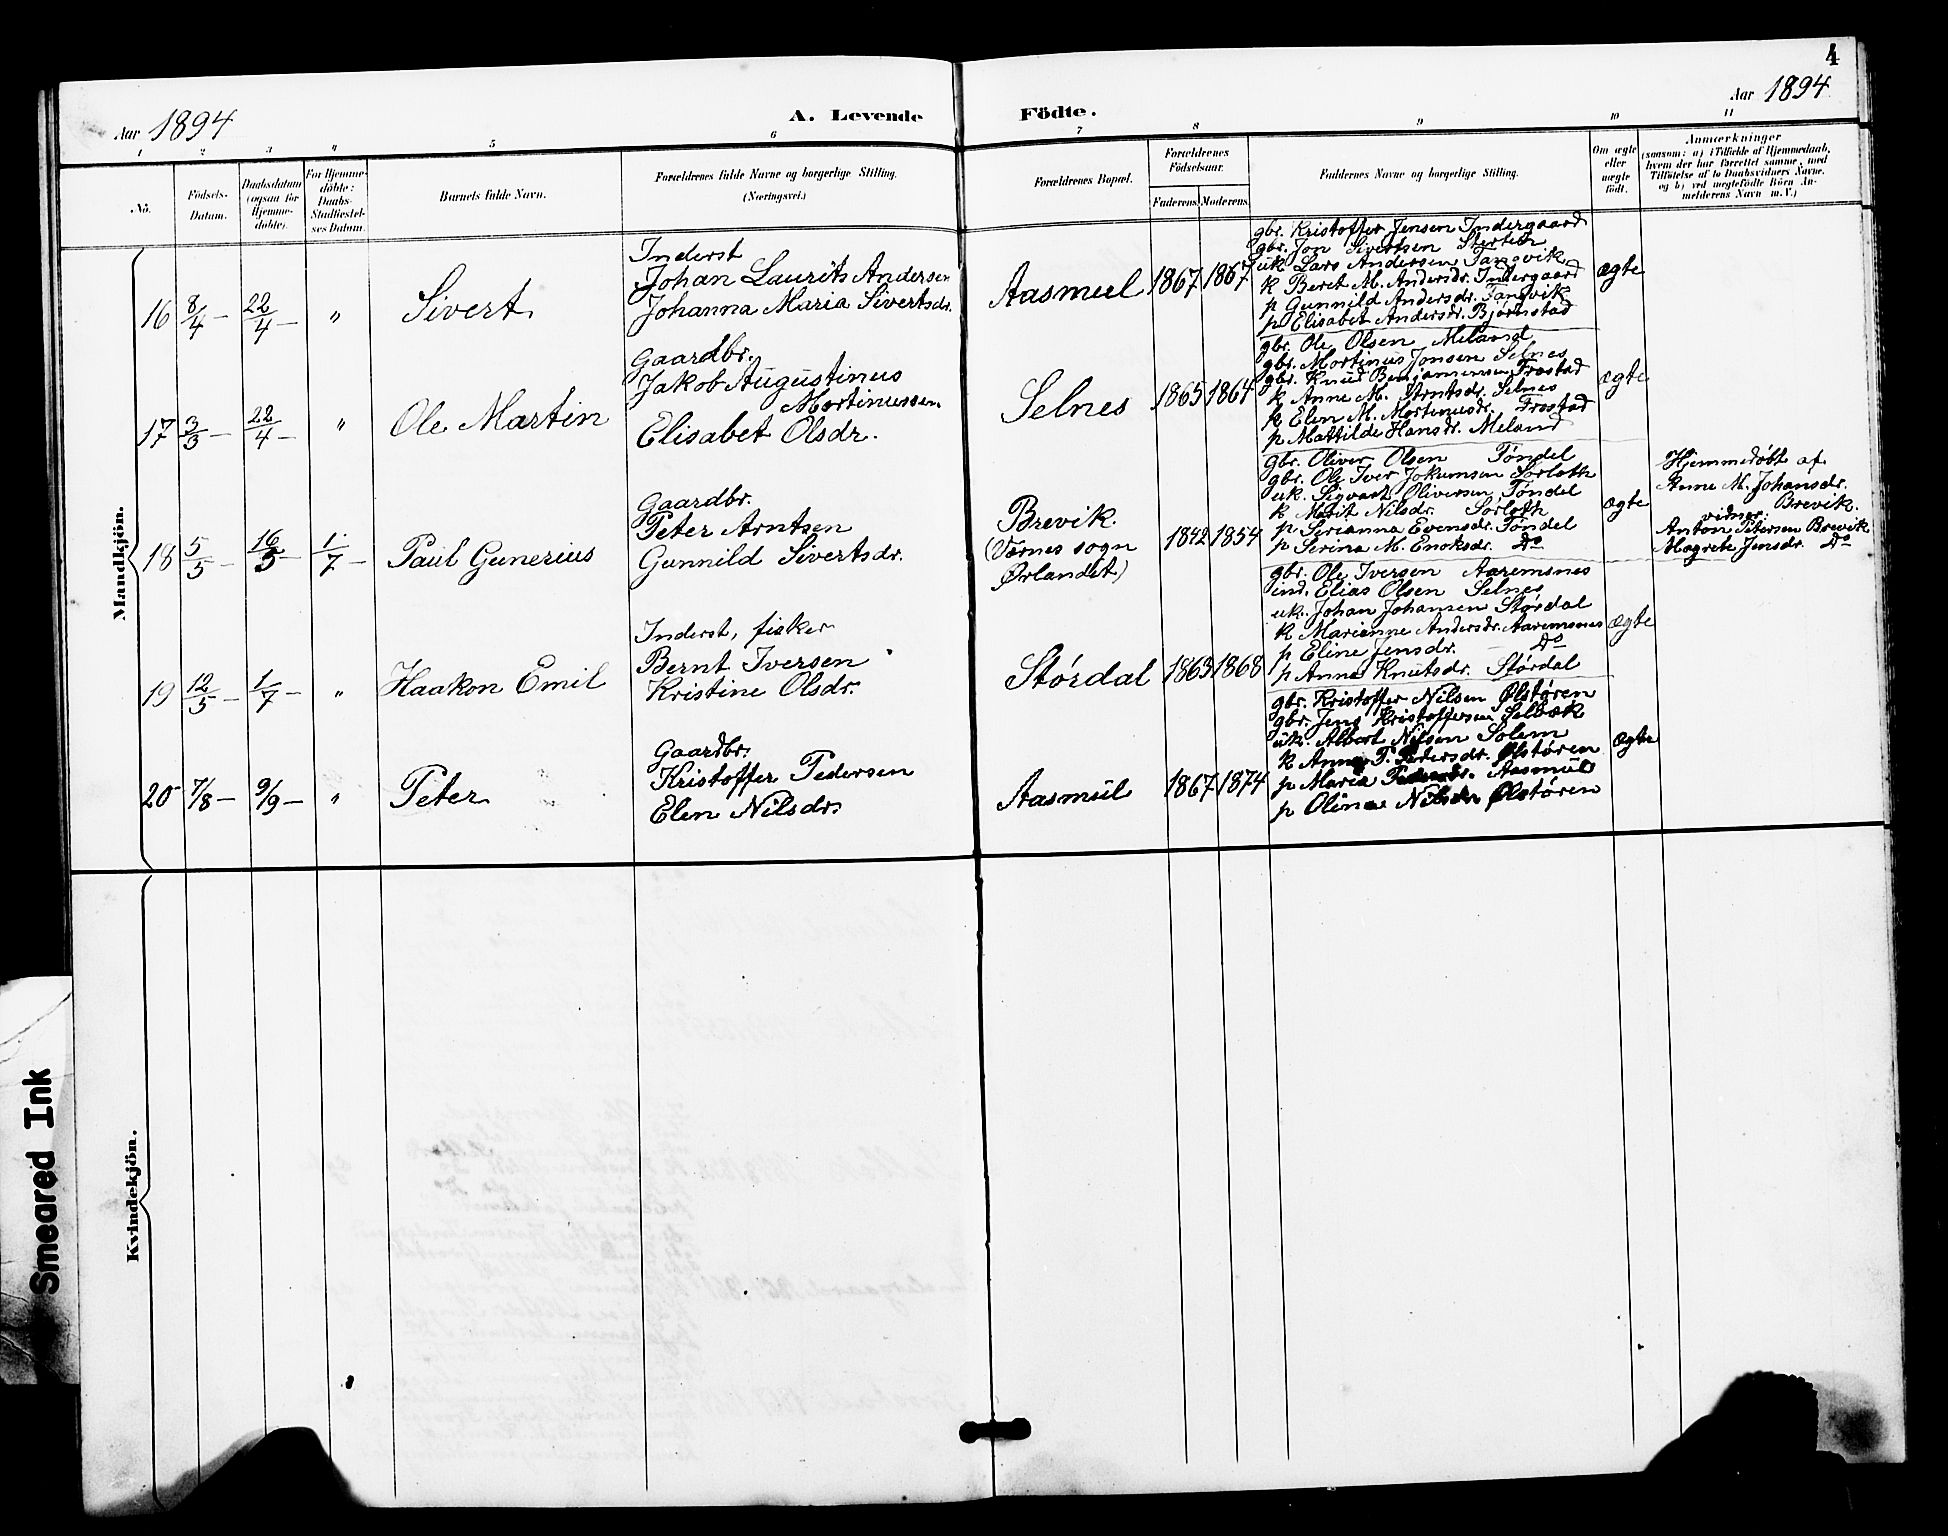 4
Aar 1894
A. Levende Födte.
Aar 1894
1 2 3 4 5 6 7 8 9 10 11
No.
Födsels-
Datum.
Daabsdatum
(ogsaa for
Hjemme-
döbte).
For Hjemme-
döbte:
Daabs-
Stadfæstel-
ses Datum.
Barnets fulde Navn.
Forældrenes fulde Navne og borgerlige Stilling.
(Næringsvei.)
Forældrenes Bopæl.
Forældrenes
Födselsaar.
Faderens. Moderens.
Faddernes Navne og borgerlige Stilling.
Om ægte
eller
uægte
födt.
Anmærkninger
(saasom: a) i Tilfælde af Hjemmedaab,
hvem der har forrettet samme, med
Tilföielse af to Daabsvidners Navne,
og b) ved uægtefödte Börn An-
melderens Navn m. V.)
Mandkjön.
16 8/4 — 22/4 — " Sivert.
Inderst
Johan Laurits Andersen
Johanna Maria Sivertsdr.
Aasmul 1867 1867
gbr. Kristoffer Jensen Indergaard
gbr. Jon Sivertsen Sterten
uk. Lars Andersen Tangvik
k Beret M. Andersdr. Indergaard
p Gunnild Andersdr. Tangvik
p Elisabet Andersdr. Bjørnstad
ægte
17 3/3 — 22/4 — " Ole Martin
Gaardbr.
Jakob Augustinus
Mortinussen
Elisabet Olsdr.
Selnes 1865 1864
gbr. Ole Olsen Meland
gbr. Mortinus Jonsen Selnes
gbr. Knud Benjaminsen Frostad
k Anne M. Arntsdr. Selnes
k Elen M. Mortinusdr. Frostad
p Mattilde Hansdr. Meland
ægte
18 5/5 — 16/5 — 1/7 — Paul Gunerius
Gaardbr.
Peter Arntsen
Gunnild Sivertsdr.
Brevik.
(Værnes sogn
Ørlandet)
1842 1854
gbr. Oliver Olsen Tøndel
gbr. Ole Iver Jokumsen Sørloth
uk. Sigvart Oliversen Tøndel
k Marit Nilsdr. Sørloth
p. Serianna Evensdr. Tøndel
p Serina M. Enoksdr. Do
ægte
Hjemmedøbt af
Anne M. Johansdr.
Brevik.
vidner:
Anton Petersen Brevik
Magrete Jensdr. Do
19 12/5 — 1/7 — " Haakon Emil
Inderst, fisker
Bernt Iversen
Kristine Olsdr.
Størdal 1863 1868
gbr. Ole Iversen Aaremsnes
ind. Elias Olsen Selnes
uk. Johan Johansen Størdal
k Marianne Andersdr. Aaremsnes
p Eline Jensdr. — Do
p Anna Knutsdr. Størdal
ægte
20 7/8 — 9/9 — " Peter
Gaardbr.
Kristoffer Pedersen
Elen Nilsdr.
Aasmul 1867 1874
gbr. Kristoffer Nilsen Ølstøren
gbr. Jens Kristoffersen Selbæk
uk. Albert Nilsen Solem
k Anne P. Pedersdr. Ølstøren
p Maria Pedersdr. Aasmul
p Olina Nilsdr. Ølstøren
ægte
Kvindekjön.
Smeared Ink